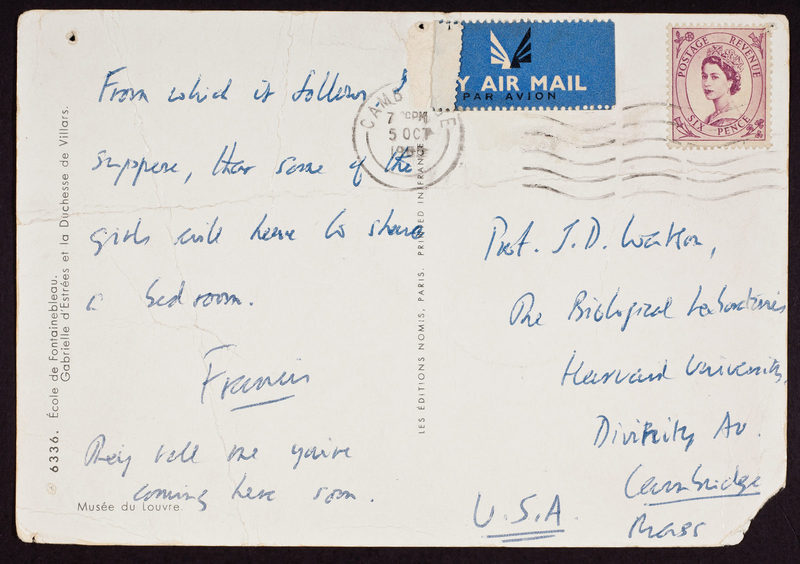 From which it follows I
suppose, that some of the
girls will have to share
a bedroom.
Francis
They tell me you're
coming here soon.
6336. École de Fontainebleau.
Gabrielle d'Estrées et la Duchesse de Villars.
Musée du Louvre
LES ÉDITIONS NOMIS, PARIS. PRINTED IN FRANCE
CAMB GE
7 PM
5 OCT
Y AIR MAIL
PAR AVION
POSTAGE REVENUE
SIX PENCE
Prof. J.D. Watson,
The Biological Laboratories
Harvard University,
Divinity Av.
Cambridge
Mass
U.S.A.